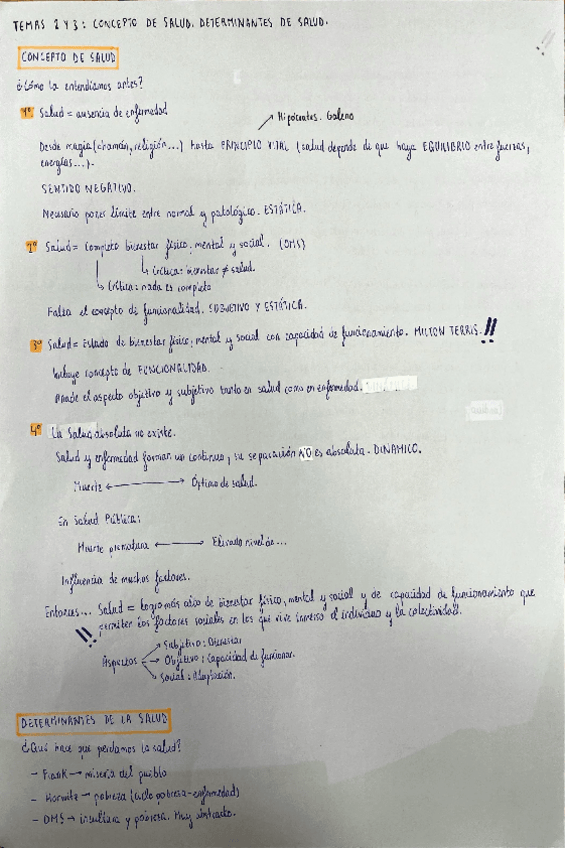 TEMAS 2 Y 3: CONCEPTO DE SALUD. DETERMINANTES DE SALUD.
CONCEPTO DE SALUD
¿Cómo la entendíamos antes?
1º Salud = ausencia de enfermedad
Hipócrates. Galeno
Desde magia (chamán, religión...) hasta PRINCIPIO VITAL (salud depende de que haya EQUILIBRIO entre fuerzas,
energías...).
SENTIDO NEGATIVO.
Necesario poner límite entre normal y patológico. ESTÁTICA.
2º Salud = completo bienestar físico, mental y social. (OMS)
Crítica: bienestar ≠ salud.
Crítica: nada es completo
Falta el concepto de funcionalidad. SUBJETIVO Y ESTÁTICA.
3º Salud = Estado de bienestar físico, mental y social con capacidad de funcionamiento. MILTON TERRIS. !!
Incluye concepto de FUNCIONALIDAD.
Añade el aspecto objetivo y subjetivo tanto en salud como en enfermedad.
4º La salud absoluta no existe.
Salud y enfermedad forman un continuo, su separación NO es absoluta. DINÁMICO.
Muerte ↔ Óptimo de salud.
En Salud Pública:
Muerte prematura ↔ Elevado nivel de...
Influencia de muchos factores.
Entonces... Salud = Logro más alto de bienestar físico, mental y social y de capacidad de funcionamiento que
!! permiten los factores sociales en los que vive inmerso el individuo y la colectividad.
Subjetivo: Bienestar
Aspectos Objetivo: Capacidad de funcionar.
Social: Adaptación.
DETERMINANTES DE LA SALUD
¿Qué hace que perdamos la salud?
- Frank → miseria del pueblo
- Horwitz → pobreza (ciclo pobreza-enfermedad)
- OMS → incultura y pobreza. Muy